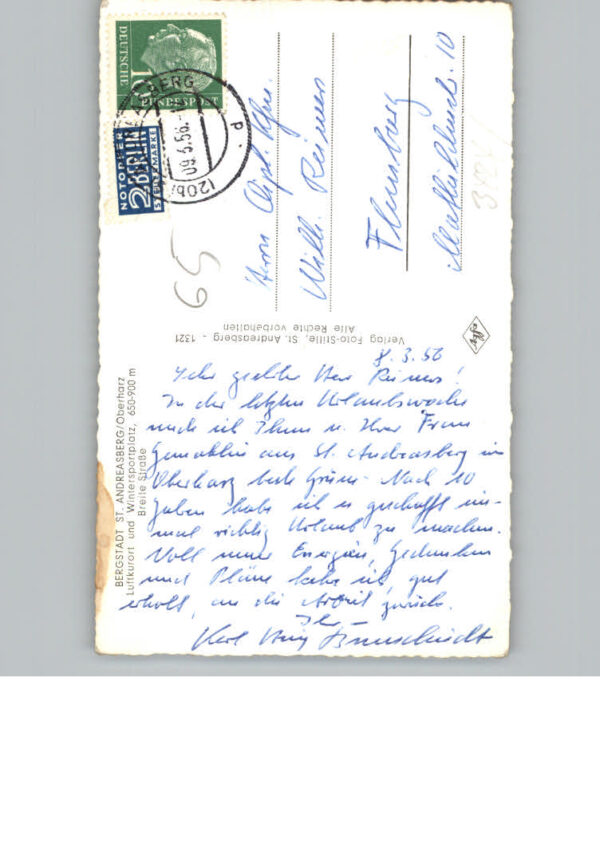 8.3.56
Sehr geehrter Herr Reimers!
In der letzten Urlaubswoche
möcht ich Ihnen u. Ihrer Frau
Gemahlin aus St. Andreasberg im
Oberharz beste Grüsse. Nach 10
Jahren habe ich es geschafft ein-
mal richtig Urlaub zu machen.
Voll neuer Energien, Gedanken
und Pläne kehre ich, gut
erholt, an die Arbeit zurück.
Ihr
Karl Heinz
Herrn Dipl. Ing.
Willi Reimers
Flensburg
10
BERGSTADT ST. ANDREASBERG/Oberharz
Luftkurort und Wintersportplatz, 650-900 m
Breite Straße
Verlag Foto-Stille, St. Andreasberg - 1321
Alle Rechte vorbehalten
DEUTSCHE
BUNDESPOST
10
NOTOPFER
2 BERLIN
STEUERMARKE
(20b)
69